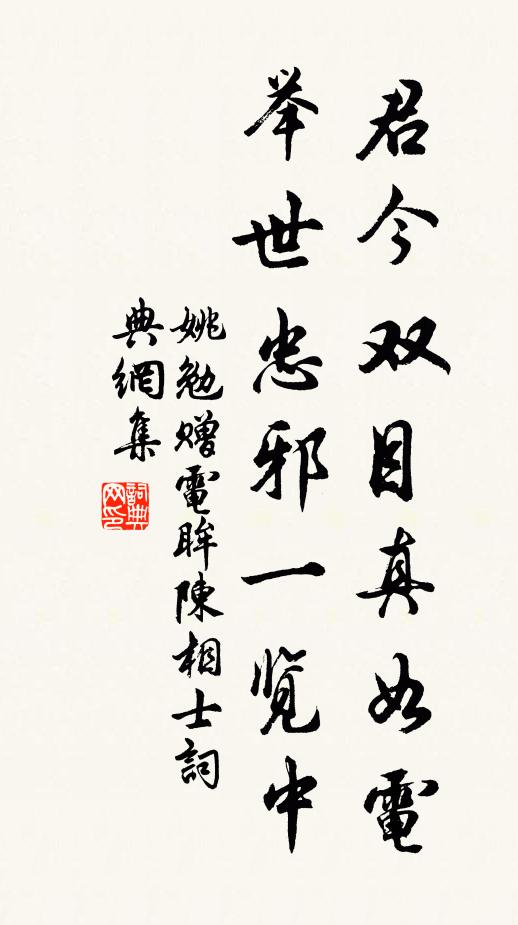 君今双目真如電
举世忠邪一览中
姚勉贈電眸陳相士詞
典網集
詞典
网印